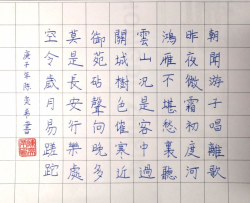 朝聞游子唱離歌
昨夜微霜初度河
鴻雁不堪愁裏聽
雲山況是客中過
關城樹色催寒近
御苑砧聲向晚多
莫是長安行樂處
空令歲月易蹉跎
庚子年 書